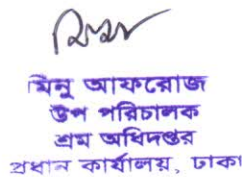 মিনু আফরোজ
উপ পরিচালক
শ্রম অধিদপ্তর
প্রধান কার্যালয়, ঢাকা